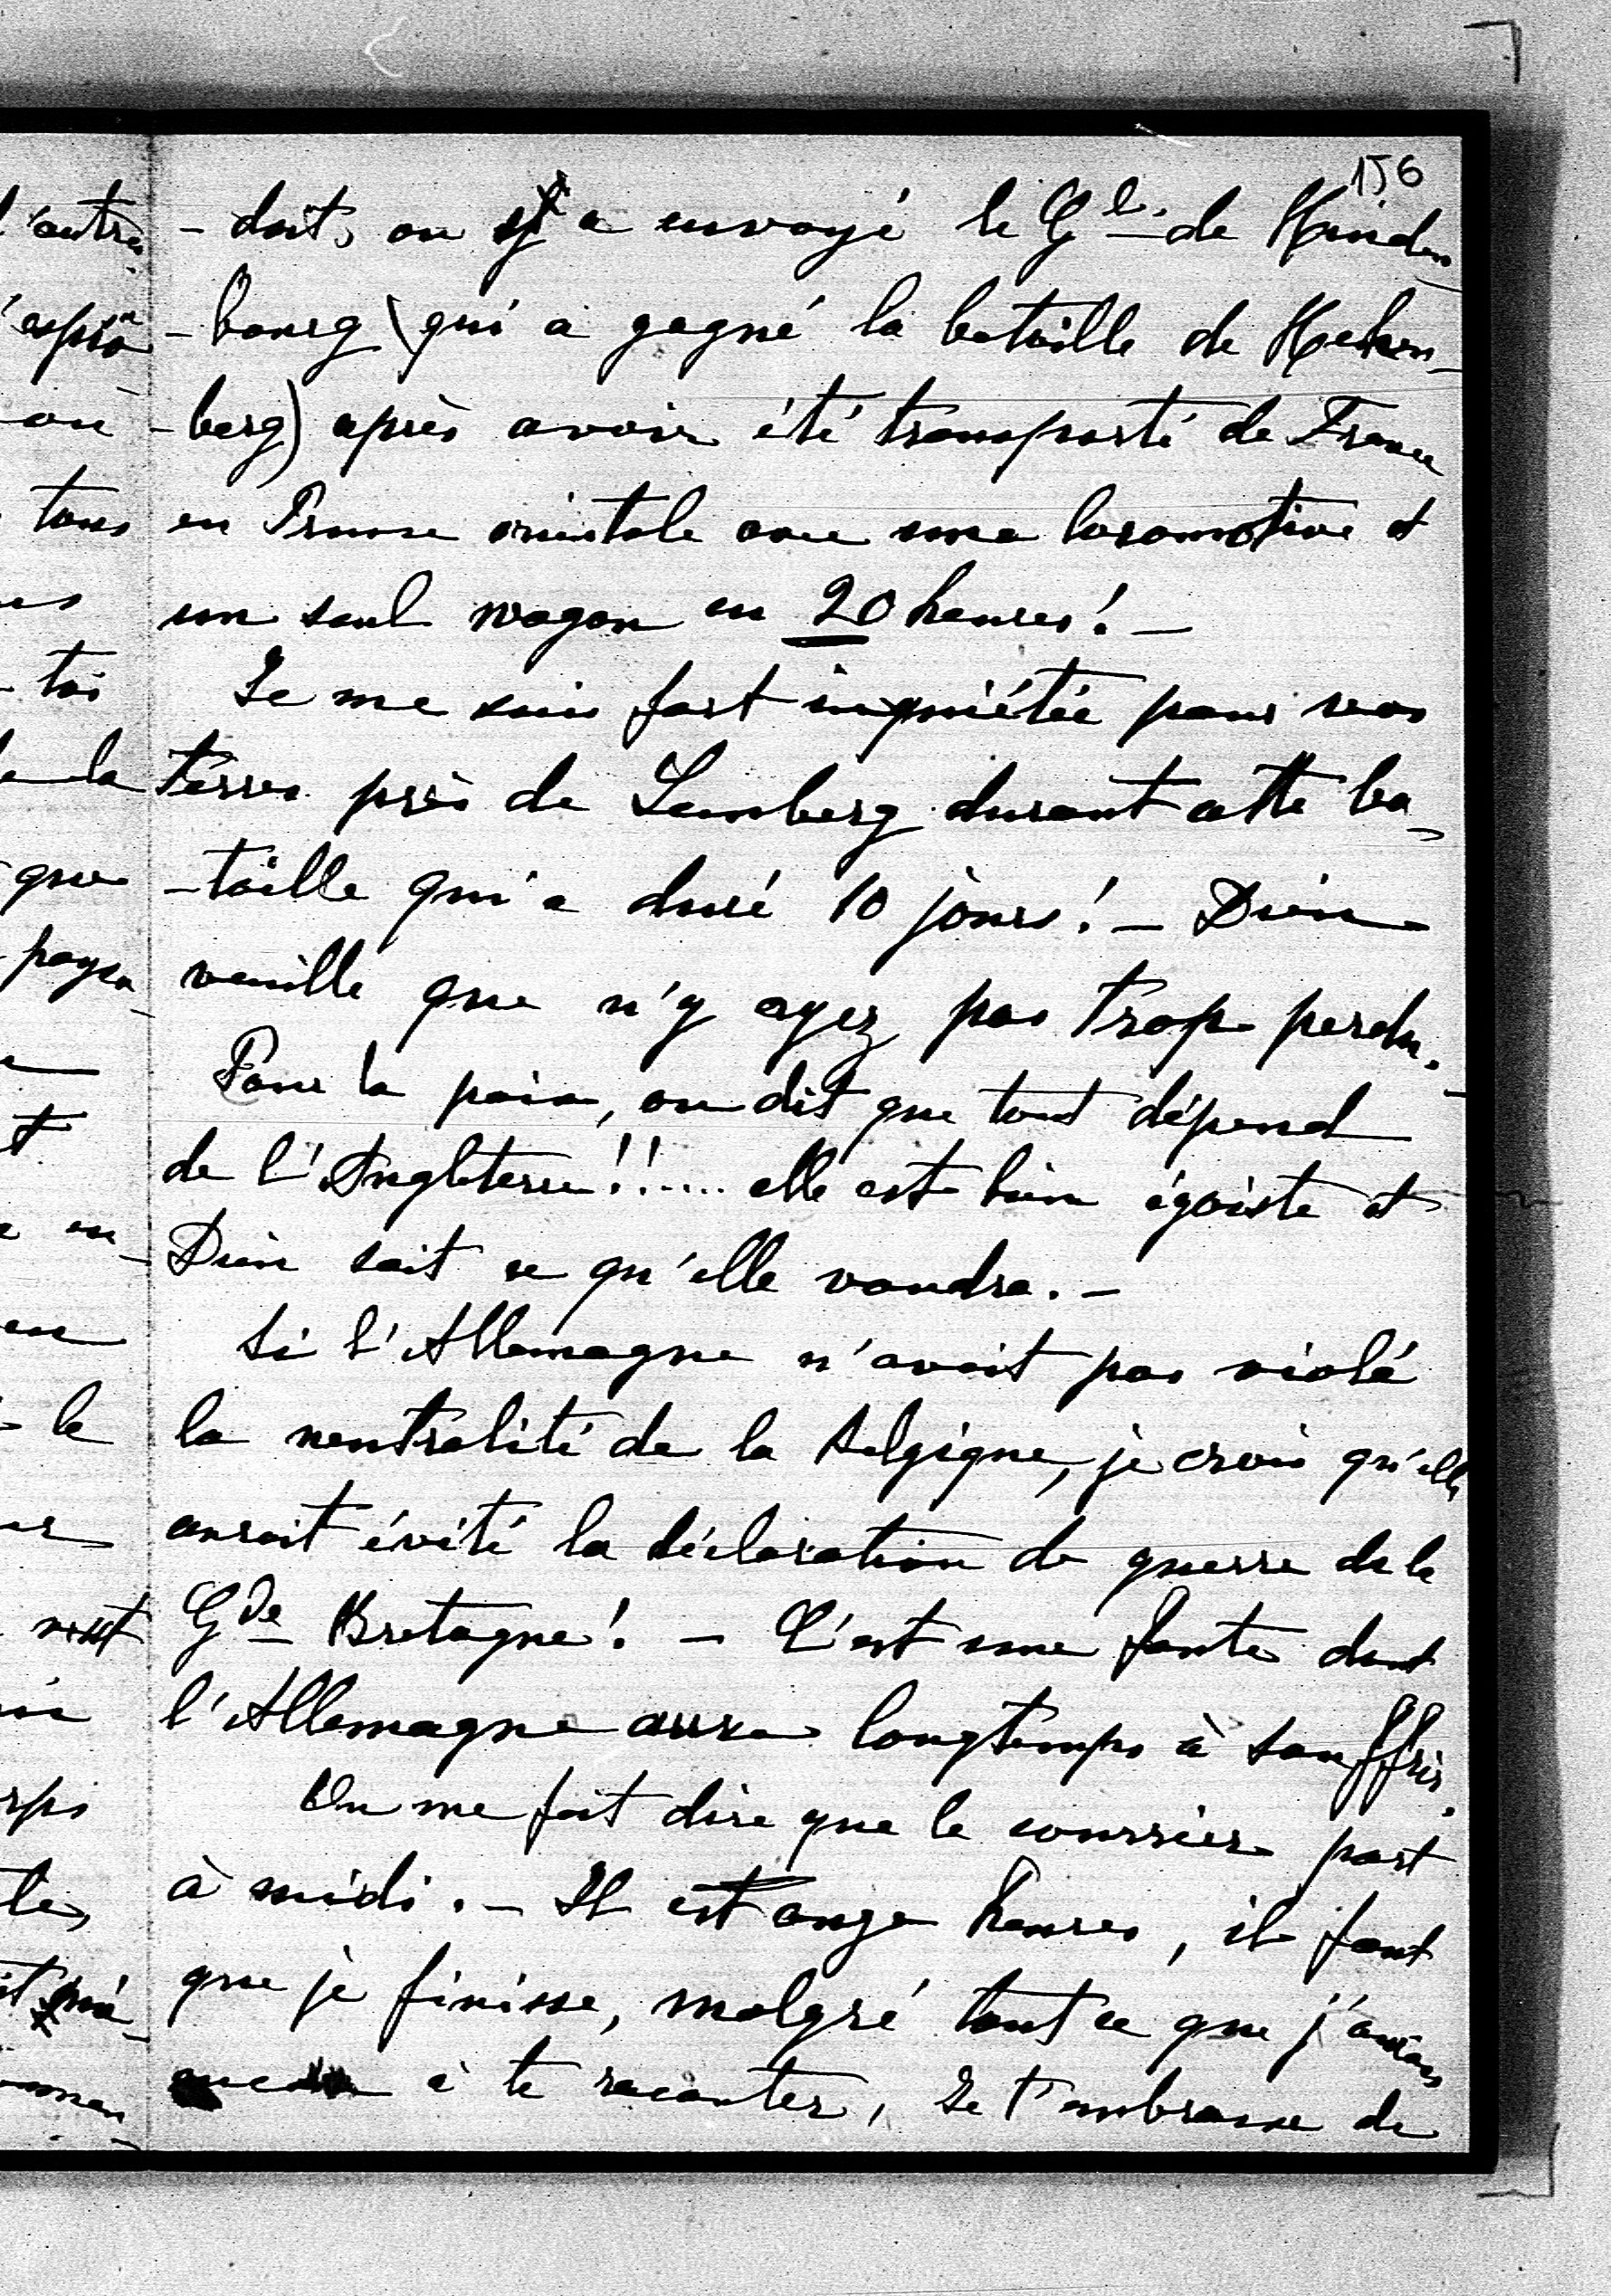 156
-dait, on y a envoyé le Gl de Hinden-
-bourg (qui a gagné la bataille de Hehen-
-berg) après avoir été transporté de France
en Prusse orientale avec une locomotive et
un seul wagon en 20 heures! -
Je me suis fort inquiétée pour vos
terres près de Lemberg durant cette ba-
-taille qui a duré 10 jours! - Dieu
veuille que n'y ayez pas trop perdu. -
Pour la paix, on dit que tout dépend
de l'Angleterre!!.... elle est bien égoïste et
Dieu sait ce qu'elle voudra. -
Si l'Allemagne n'avait pas violé
la neutralité de la Belgique, je crois qu'elle
aurait évité la déclaration de guerre de la
Gde Bretagne! - C'est une faute dont
l'Allemagne aura longtemps à souffrir.
On me fait dire que le courrier part
à midi. - Il est onze heures, il faut
que je finisse, malgré tout ce que j'aurais
encore à te raconter, Je t'embrasse de